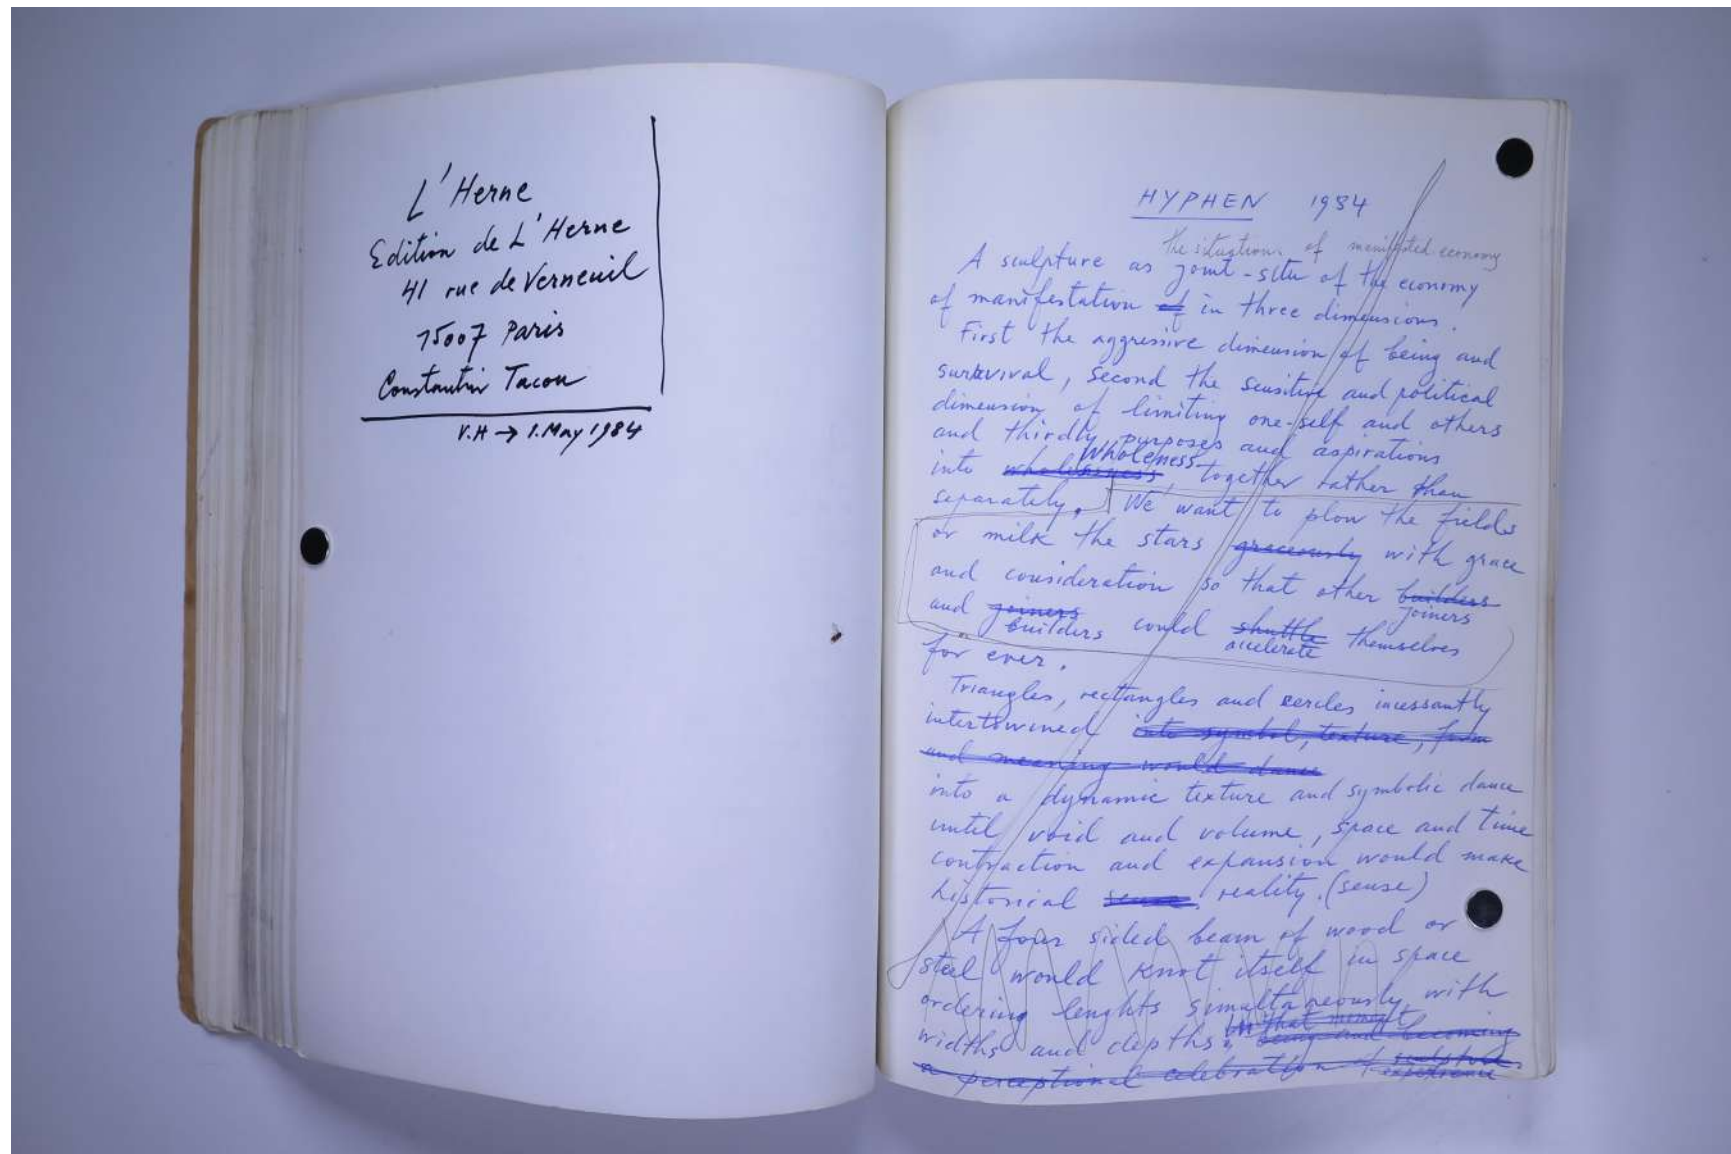 L'Herne
Edition de L'Herne
41 rue de Verneuil
75007 Paris
Constantin Tacou
V.H → 1. May 1984
HYPHEN 1984
the situations of manifested economy
A sculpture as joint-situ of the economy
of manifestation of in three dimensions.
First the aggressive dimension of being and
survival, second the sensitive and political
dimension of limiting one-self and others
and thirdly purposes and aspirations
wholeness
into together rather than
separately. We want to plow the fields
or milk the stars graceously with grace
and consideration so that other builders
joiners
and joiners could shuttle themselves
builders accelerate
for ever.
Triangles, rectangles and cercles incessantly
intertowined into symbol, texture, form
and meaning would dance
into a dynamic texture and symbolic dance
until void and volume, space and time
contraction and expansion would make
historical sense. reality. (sense)
A four sided beam of wood or
steel would knot itself in space
ordering lenghts simaltaneously with
in that moment
widths and depths, being and becoming
sculpture
a perceptional celebration of experience